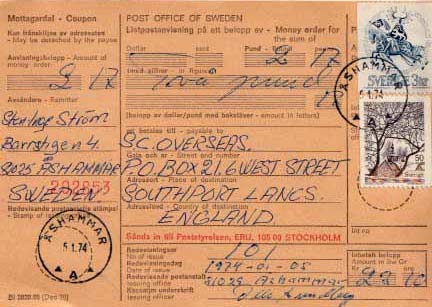 Mottagardel - Coupon
Kan frånskiljas av adressaten
- May be detached by the payee
Anvisningsbelopp - Amount of
money order
£ 17
Avsändare - Remitter
Sten-Inge Ström
Barrstigen 4
81025 ÅSHAMMAR
SWEDEN
292653
Redovisande postanstalts stämpel
- Stamp of issuing
ÅSHAMMAR
5.1.74
A
POST OFFICE OF SWEDEN
Listpostanvisning på ett belopp av - Money order for
the sum of
Dollar
cent
Pund - Pound
£ 17
med siffror - in figures
två pund
(belopp av dollar/pund med bokstäver - amount in letters)
att betalas till - payable to
S.C. OVERSEAS.
Gata och nr - Street and number
P.O. BOX 21, 6 WEST STREET
Adressort - Place of destination
SOUTHPORT LANCS.
Adressland - Country of destination
ENGLAND.
Sänds in till Poststyrelsen, ERU, 105 00 STOCKHOLM
Redovisningsnr
No of issue
101
Redovisningsdag
Date of issue
1974-01-05
Redovisande postanstalt
Issuing office
81025 Åshammar
Kassörens underskrift
Issuing officer
Inbetalt belopp
Amount in Sw Cr
Kr
22 10
SVERIGE 3 KR
ÅSHAMMAR
5.1.74
A
50